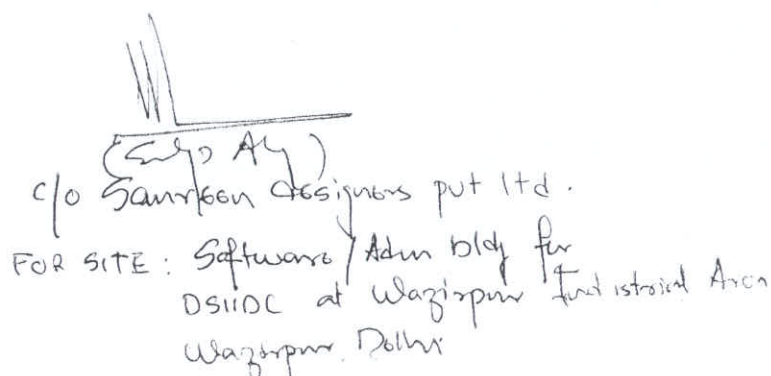 c/o designers pvt ltd.
FOR SITE : Software / Adm bldg for
DSIIDC at Wazirpur Industrial Area
Wazirpur, Delhi